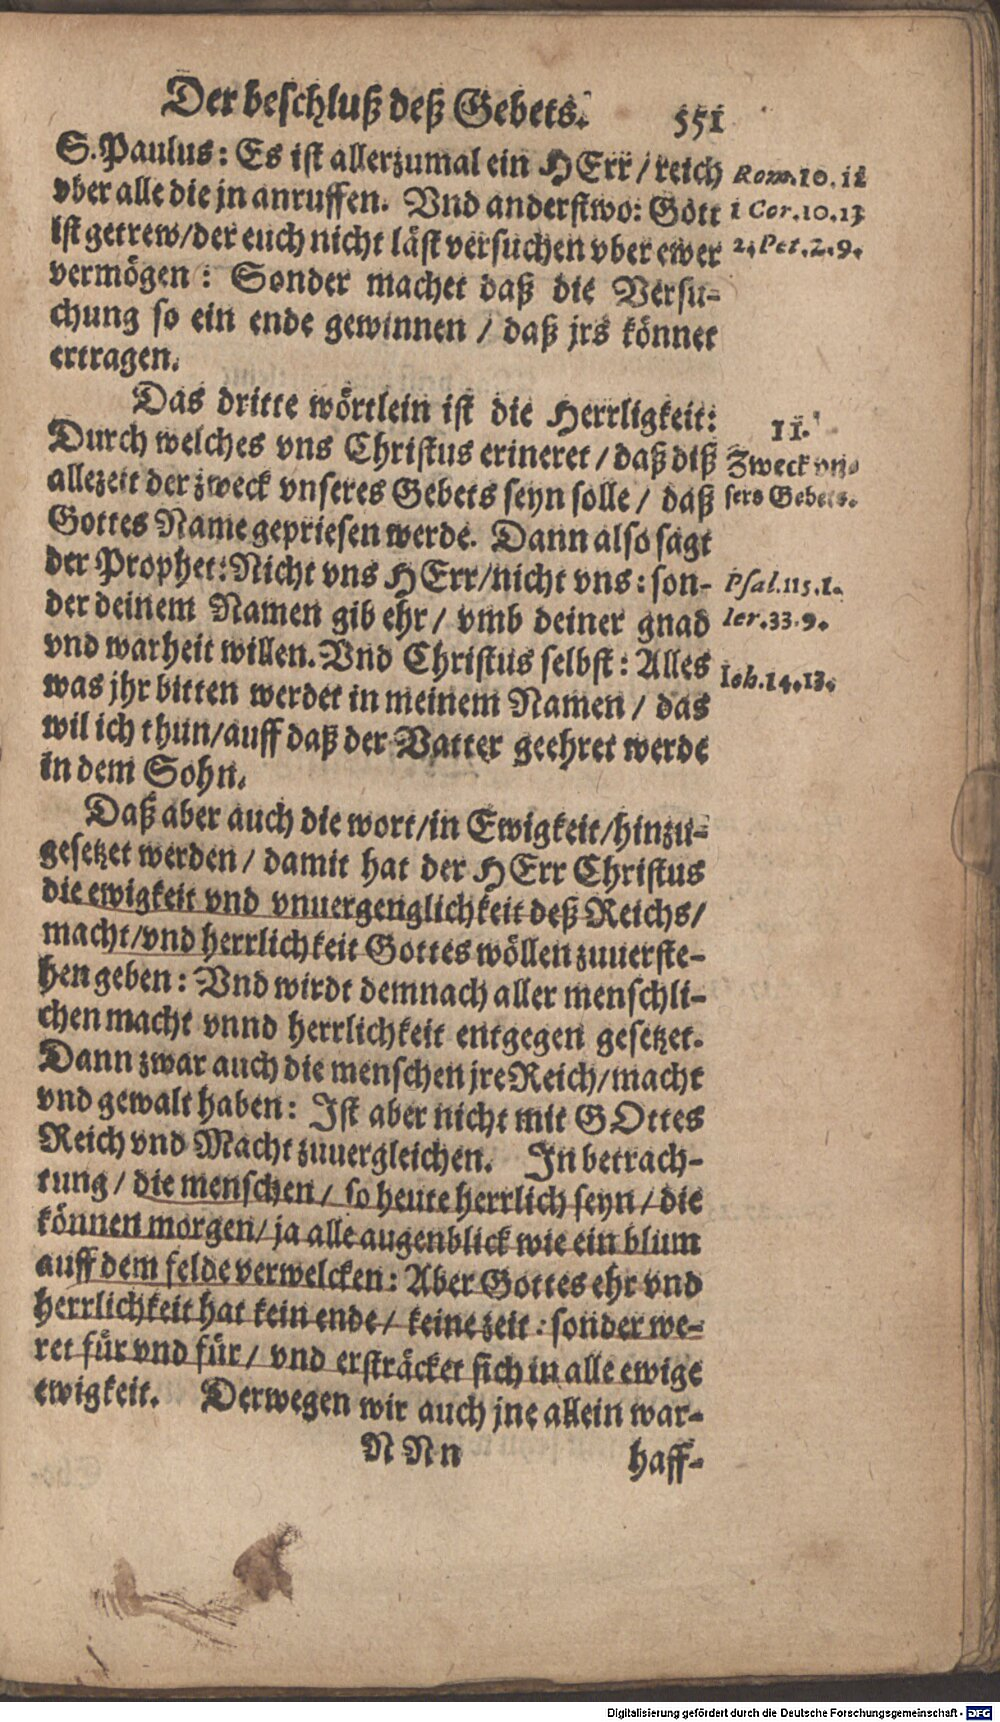 Der beschluß deß Gebets. 551
S. Paulus: Es ist allerzumal ein HErr / reich
vber alle die jn anruffen. Vnd anderstwo: Gott
ist getrew/der euch nicht läst versuchen vber ewer
vermögen: Sonder machet daß die Versu-
chung so ein ende gewinnen / daß jrs könnet
ertragen.
Rom.10.12
1 Cor.10.13
2.Pet.2.9.
Das dritte wörtlein ist die Herrligkeit:
Durch welches vns Christus erineret / daß diß
allezeit der zweck vnseres Gebets seyn solle / daß
Gottes Name gepriesen werde. Dann also sagt
der Prophet: Nicht vns HErr/nicht vns: son-
der deinem Namen gib ehr / vmb deiner gnad
vnd warheit willen. Vnd Christus selbst: Alles
was jhr bitten werdet in meinem Namen / das
wil ich thun/auff daß der Vatter geehret werde
in dem Sohn.
II.
Zweck vn-
sers Gebets.
Psal.115.1.
Ier.33.9.
Ioh.14.13.
Daß aber auch die wort/in Ewigkeit/hinzu-
gesetzet werden / damit hat der HErr Christus
die ewigkeit vnd vnuergenglichkeit deß Reichs/
macht/vnd herrlichkeit Gottes wöllen zuuerste-
hen geben: Vnd wirdt demnach aller menschli-
chen macht vnnd herrlichkeit entgegen gesetzet.
Dann zwar auch die menschen jre Reich/macht
vnd gewalt haben: Ist aber nicht mit GOttes
Reich vnd Macht zuuergleichen. In betrach-
tung / die menschen / so heute herrlich seyn / die
können morgen/ ja alle augenblick wie ein blum
auff dem felde verwelcken: Aber Gottes ehr vnd
herrlichkeit hat kein ende / keine zeit: sonder we-
ret für vnd für / vnd ersträcket sich in alle ewige
ewigkeit. Derwegen wir auch jne allein war-
NNn haff-
Digitalisierung gefördert durch die Deutsche Forschungsgemeinschaft - DFG